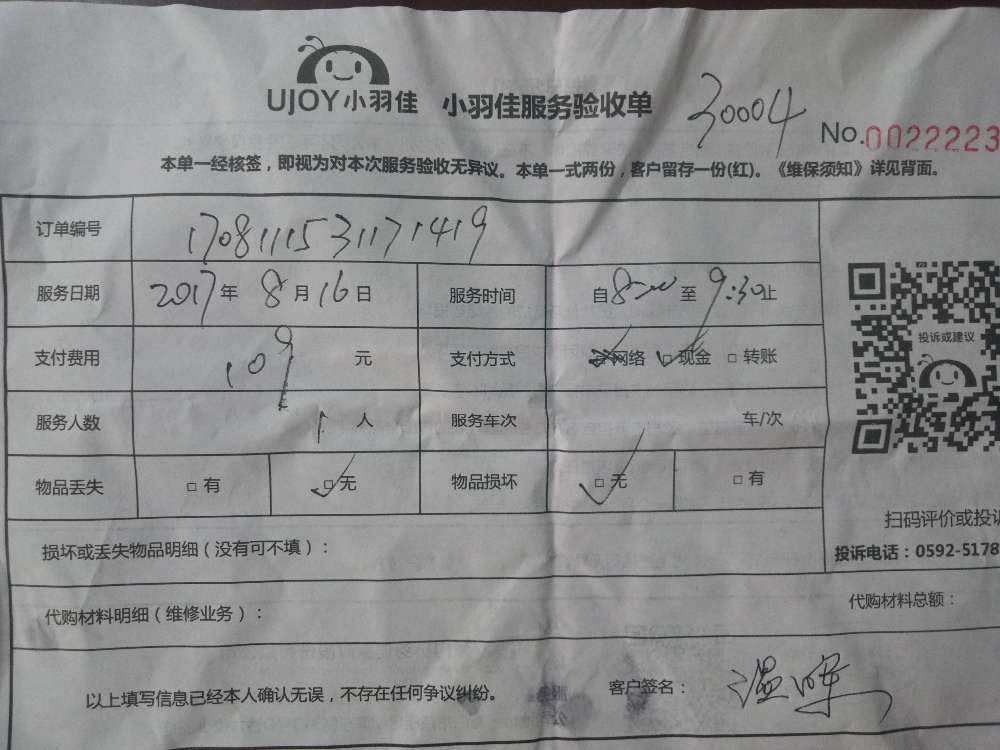 UJOY小羽佳 小羽佳服务验收单 30004
No.0022223
本单一经核签，即视为对本次服务验收无异议。本单一式两份，客户留存一份(红)。《维保须知》详见背面。
订单编号 170811153171419
服务日期 2017年8月16日 服务时间 自8:00至9:30止
支付费用 109元 支付方式 □网络 □现金 □转账
服务人数 1人 服务车次 车/次
投诉或建议
物品丢失 □有 □无 物品损坏 □无 □有
扫码评价或投诉
损坏或丢失物品明细（没有可不填）：
投诉电话：0592-5178
代购材料明细（维修业务）： 代购材料总额：
以上填写信息已经本人确认无误，不存在任何争议纠纷。 客户签名：